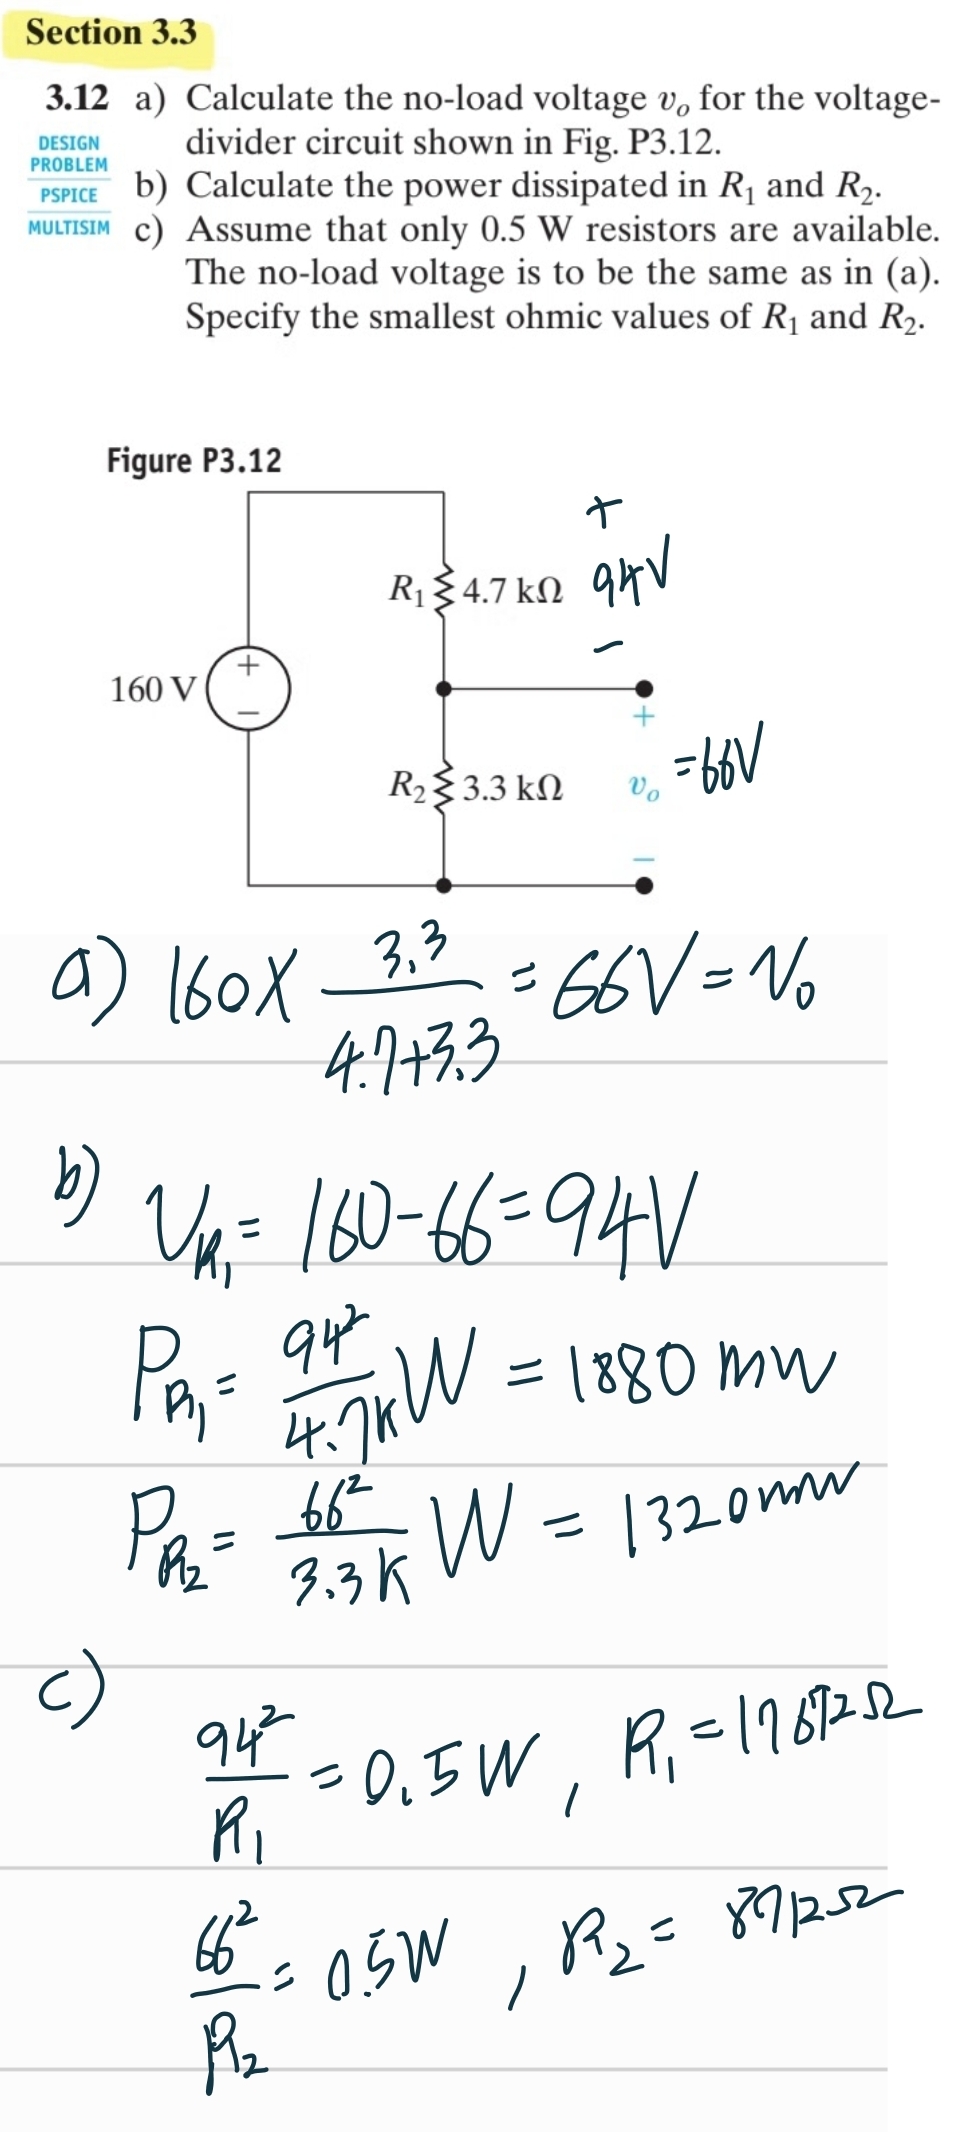 Section 3.3
3.12 a) Calculate the no-load voltage vₒ for the voltage-
divider circuit shown in Fig. P3.12.
DESIGN
PROBLEM
PSPICE
MULTISIM
b) Calculate the power dissipated in R₁ and R₂.
c) Assume that only 0.5 W resistors are available.
The no-load voltage is to be the same as in (a).
Specify the smallest ohmic values of R₁ and R₂.
Figure P3.12
+
R₁ 4.7 kΩ 94V
−
160 V + −
+
R₂ 3.3 kΩ vₒ =66V
−
a) 160X 3.3/4.7+3.3 = 66V = Vₒ
b) V_R₁ = 160-66=94V
P_R₁ = 94²/4.7K W = 1880 mW
P_R₂ = 66²/3.3K W = 1320mW
c)
94²/R₁ = 0.5W , R₁ = 17672Ω
66²/R₂ = 0.5W , R₂ = 8712Ω